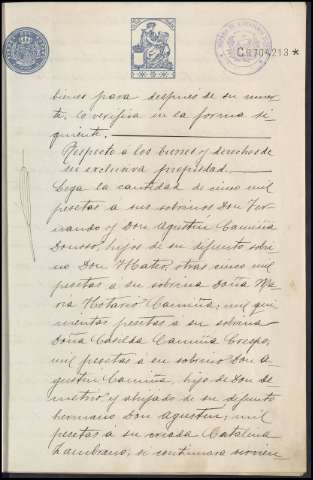 C.8704213*
bienes para despues de su muer
te, lo verifica en la forma si
guiente.
Respecto a los bienes y derechos de
su exclusiva propiedad.
Lega la cantidad de cinco mil
pesetas a sus sobrinos Don Fer
nando y Don Agustin Camiña
Donoso, hijos de su difunto sobri
no Don Mateo, otras cinco mil
pesetas á su sobrina Doña Ma
ria Notario Camiña; mil qui
nientas pesetas a su sobrina
Doña Casilda Camiña Crespo,
mil pesetas a su sobrino Don A
gustin Camiña, hijo de Don De
metrio, y ahijado de su difunto
hermano Don Agustin; mil
pesetas á su criada Catalina
Zambrano, si continuara sirvien